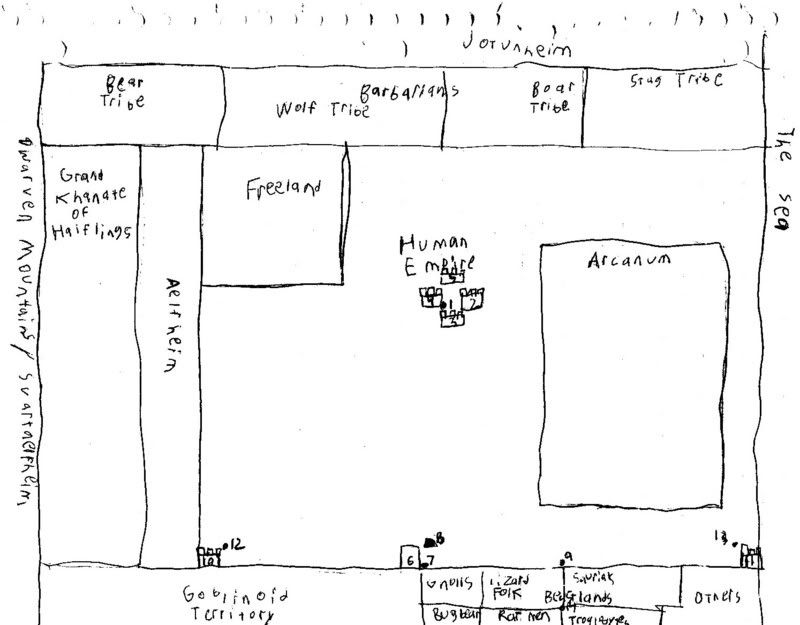 Jotunheim
Bear
Tribe
Barbarians
Wolf Tribe
Boar
Tribe
Stag Tribe
The sea
Dwarven Mountains/Svartalfheim
Grand
Khanate
of
Halflings
Aelfheim
Freeland
Human
Empire
5
4
1
2
3
Arcanum
12
10
8
6
7
9
13
11
Goblinoid
Territory
Gnolls
Lizard
Folk
Beastlands
Others
Bugbear
Rat men
Troglodytes